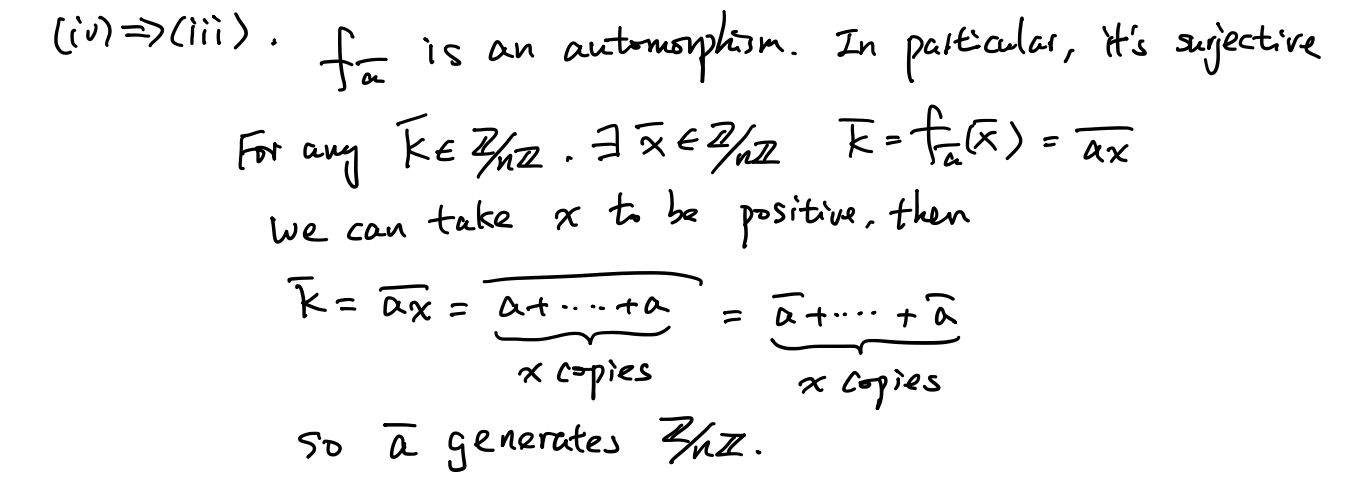 (iv)⇒(iii). f_ā is an automorphism. In particular, it's surjective
For any k̄ ∈ ℤ/nℤ. ∃ x̄ ∈ ℤ/nℤ k̄ = f_ā(x̄) = \overline{ax}
we can take x to be positive, then
k̄ = \overline{ax} = \overline{a+·····+a} = ā+····+ā
x copies x copies
so ā generates ℤ/nℤ.